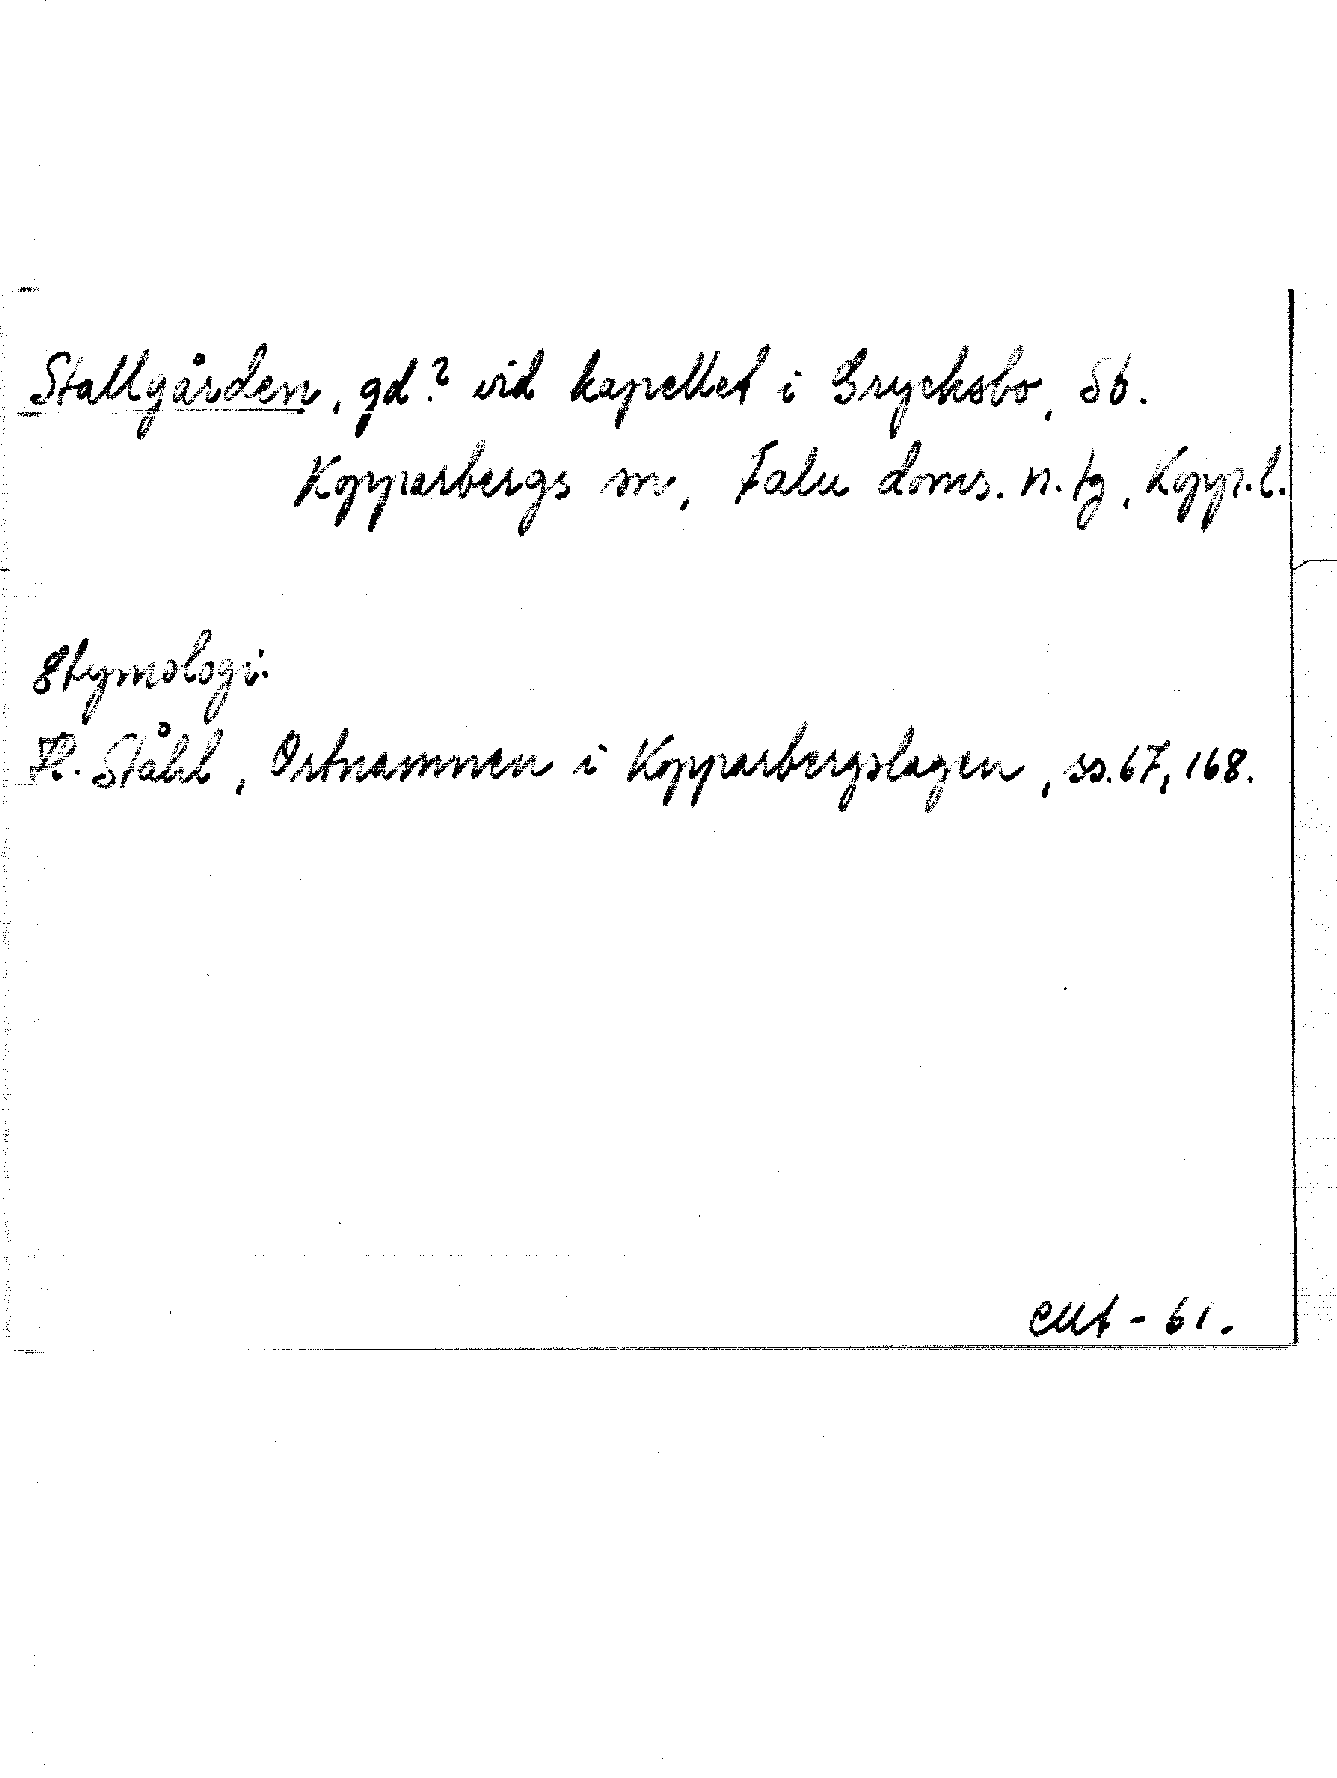 Stallgården, gd? vid kapellet i Grycksbo, St.
Kopparbergs sn, Falu doms. n. tg, Kopp.l.
Etymologi.
H. Ståhl, Ortnamnen i Kopparbergslagen, ss. 67, 168.
- 61.